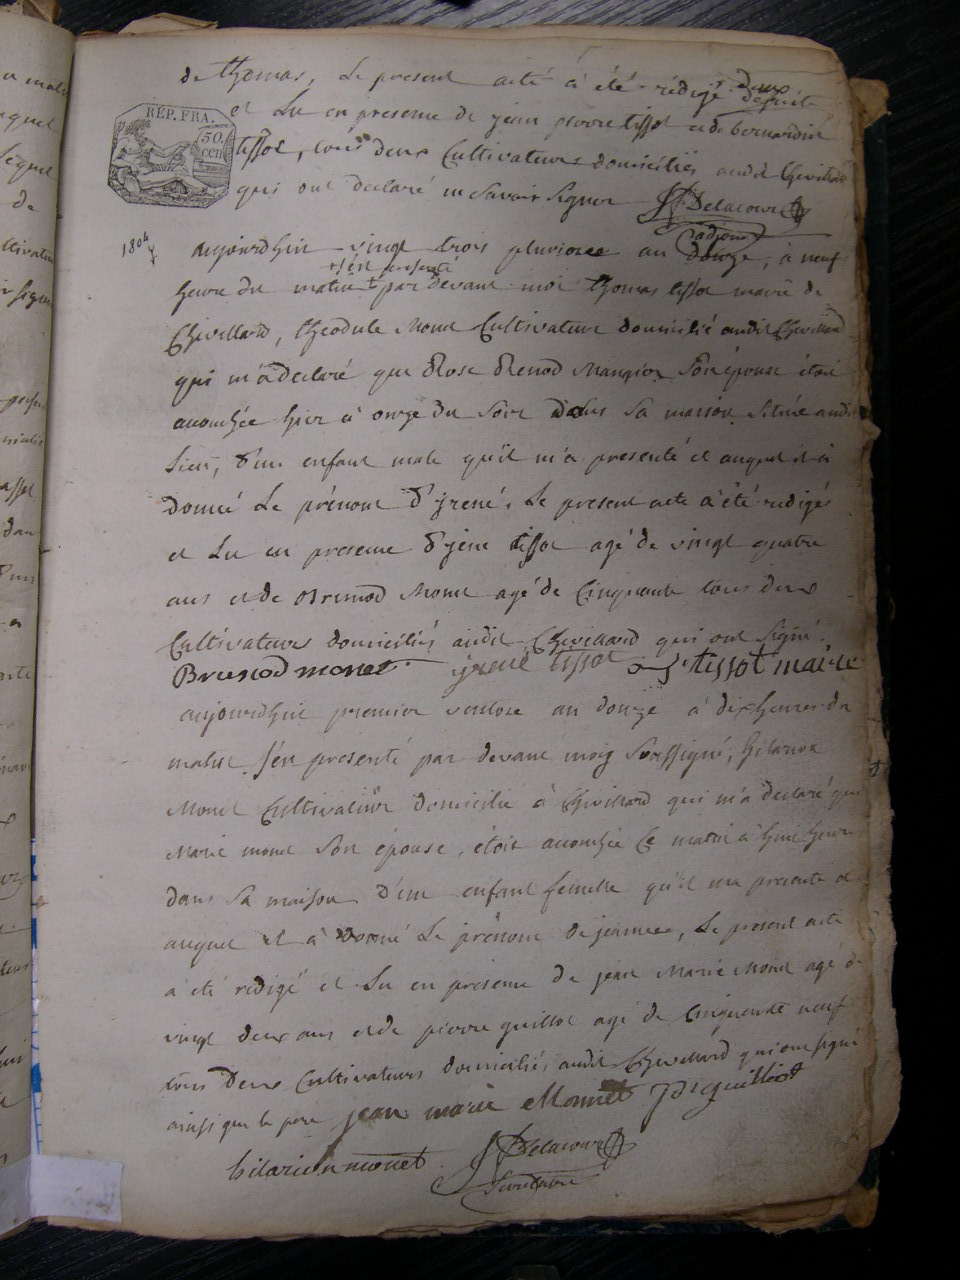 de thomas, Le present acte à été rédigé deux
et Lu en presence de jean pierre tissot et de bernardin
tissot, tous deux Cultivateurs domiciliés audit Chevillard
qui ont declaré ne Savoir Signer JDelacour
adjoint
RÉP. FRA.
50.
cen
1804
aujourdhui vingt trois pluviose an douze, à neuf
s'est presenté
heure du matin par devant moi thomas tissot maire de
Chevillard, theodule Monet Cultivateur domicilié audit Chevillard
qui m'a declaré que Rose Renod Mangier Son épouse étoit
accouchée hier à onze du Soir dans Sa maison Située audit
Lieu, d'un enfant male qu'il m'a presenté et auquel il à
donné Le prénom d'jrené, Le present acte à été redigé
et Lu en presence d'jrené tissot agé de vingt quatre
ans et de Brunod Monet agé de Cinquante tous deux
Cultivateurs domiciliés audit Chevillard qui ont Signé.
Brunod monet jrené tissot tissot maire
aujourdhui premier ventose an douze à dix heures du
matin s'en presenté par devant moy Soussigné, hilarion
Monet Cultivateur domicilié à Chevillard qui m'a declaré que
Marie monet Son épouse, étoit accouchée Ce matin à huit heure
dans Sa maison d'un enfant femelle qu'il ma presenté et
auquel il à donné Le prénom de jeanne, Le present acte
à été rédigé et Lu en presence de jean Marie Monet agé de
vingt deux ans et de pierre guillot agé de Cinquante neuf
tous deux Cultivateurs domiciliés audit Chevillard qui ont signé
ainsi que le pere jean marie Monnet guilliot
hilarion monet JDelacour
Secretaire